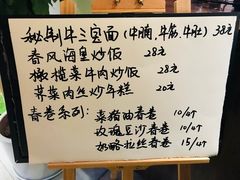 秘制牛三宝面（牛腩,牛筋,牛肚）38元
春风海皇炒饭 28元
橄榄菜牛肉炒饭 28元
荠菜肉丝炒年糕 20元
春卷系列: 菜猪油春卷 10/4个
玫瑰豆沙春卷 10/4个
奶酪拉丝春卷 15/4个